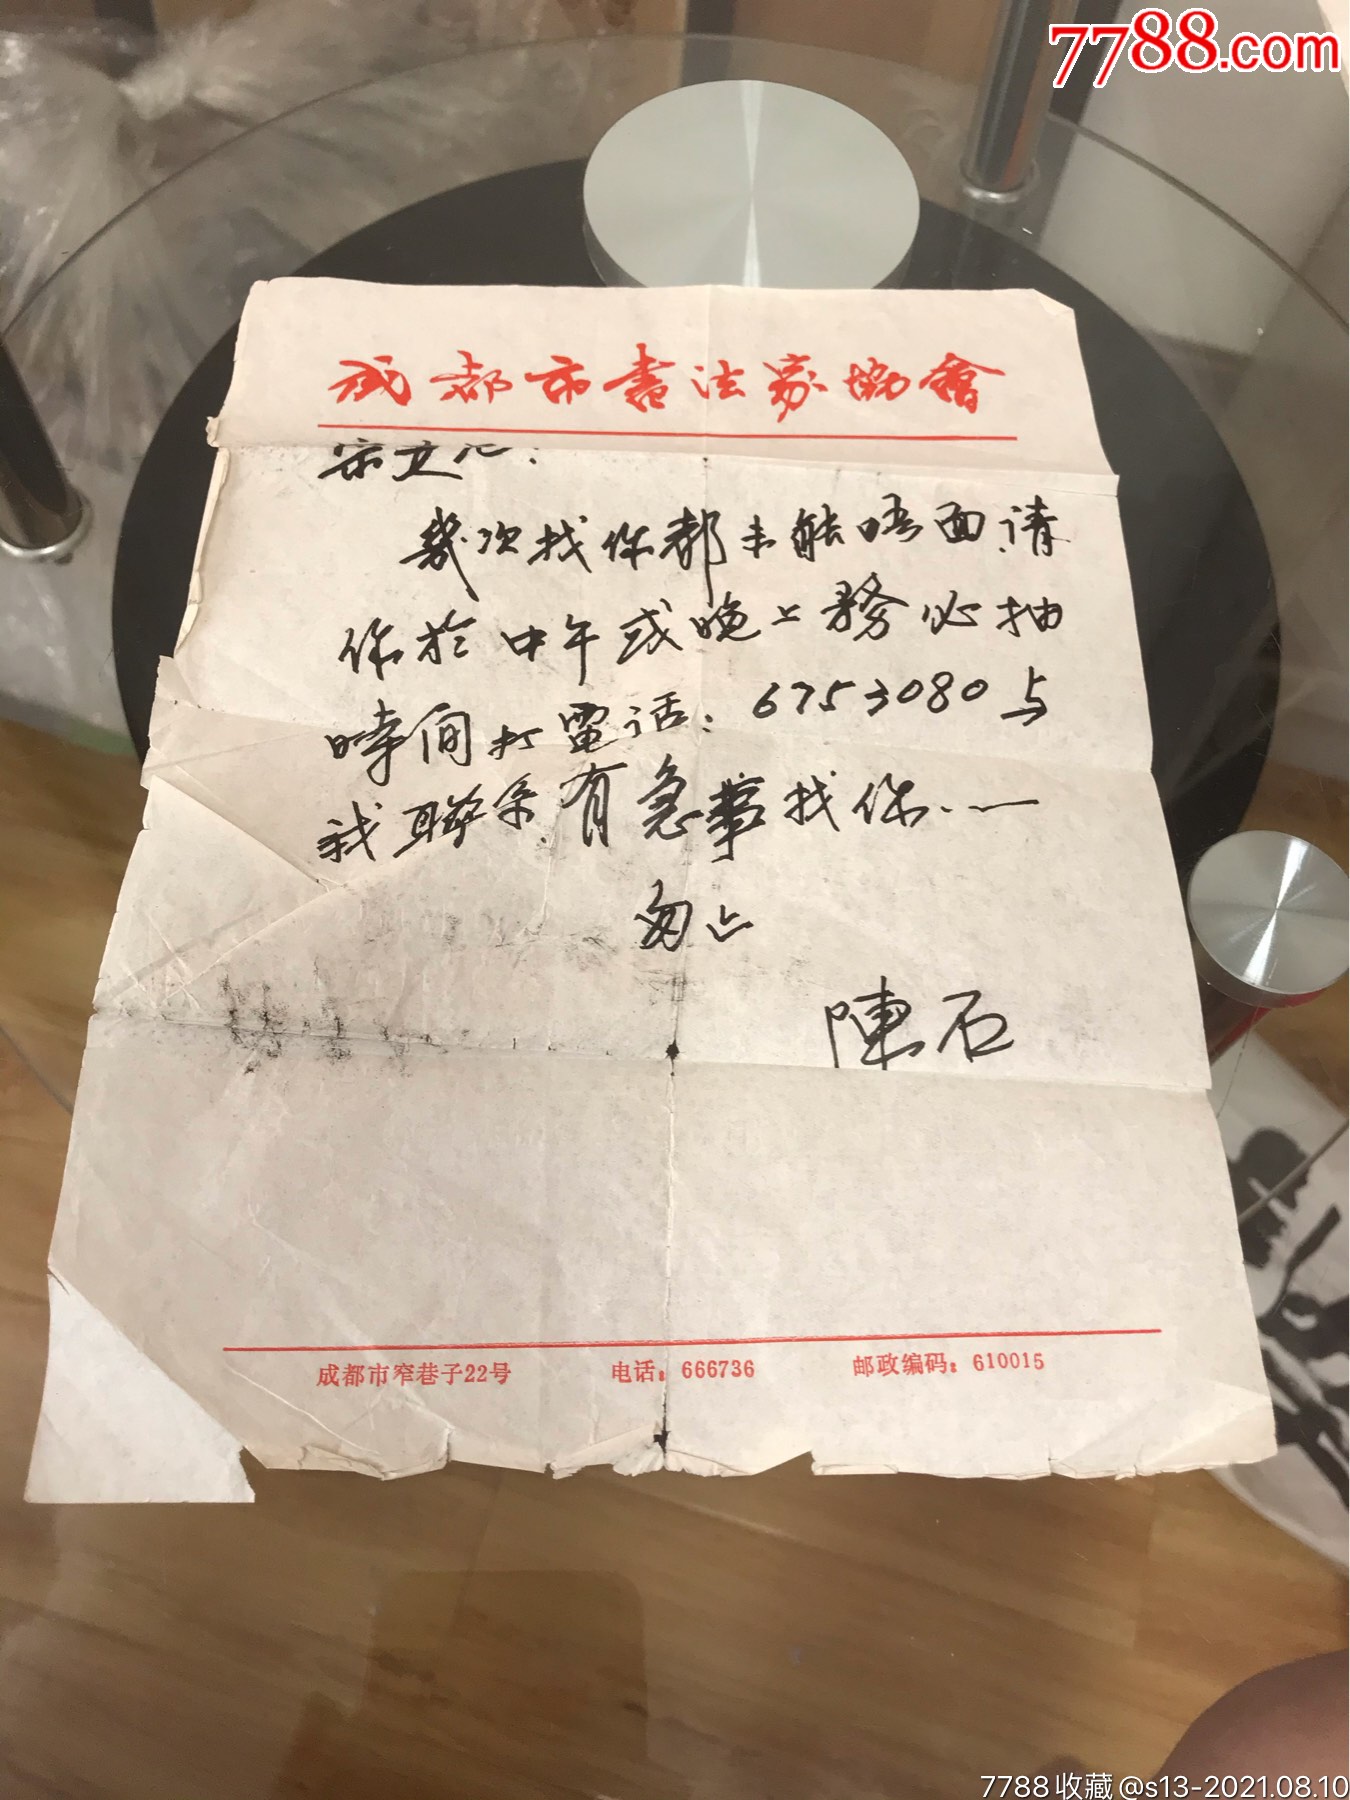 7788.com
成都市书法家协會
宗立
幾次找你都未能晤面.请
你於中午或晚上務必抽
時间打電话:6753080与
我聯系.有急事找你.一
匆上
陳石
成都市窄巷子22号 电话:666736 邮政编码:610015
7788收藏@s13-2021.08.10